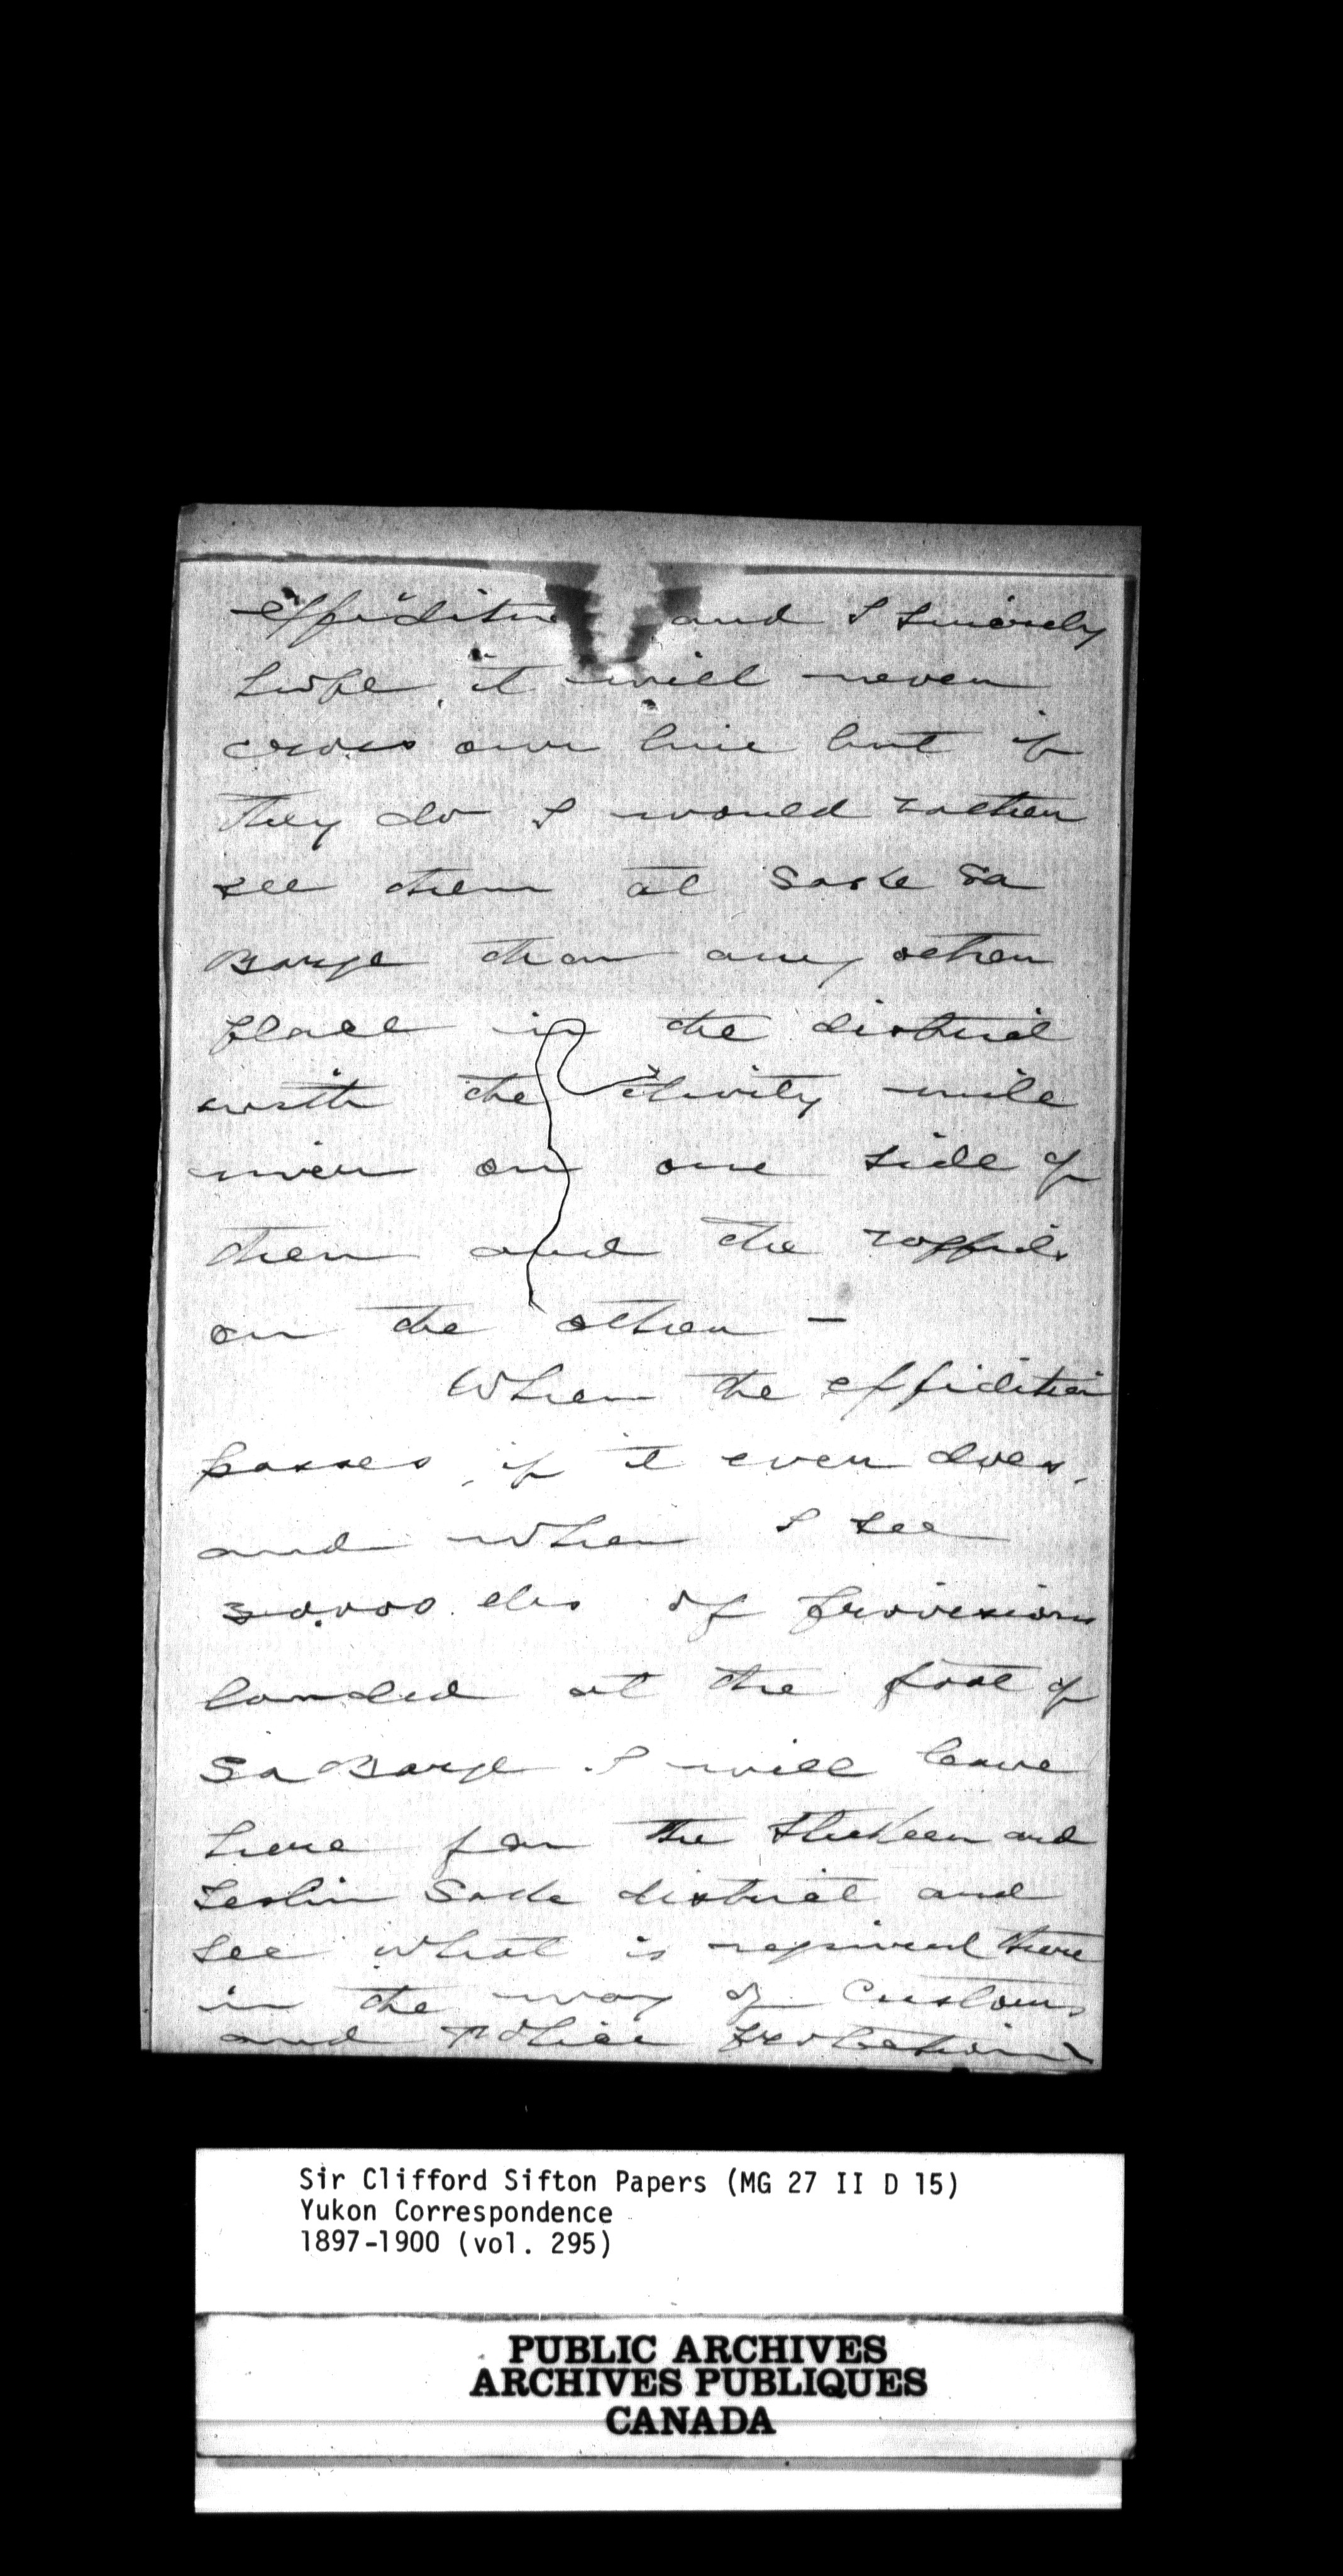 expedition and I sincerely
hope it will never
cross our line but if
they do I would rather
see them at Lake La
Barge than any other
place in the district
with the thirty mile
river on one side of
them and the rapids
on the other —
When the expedition
passes, if it ever does,
and when I see
30,000 lbs of provisions
landed at the foot of
La Barge I will leave
here for the Stikeen and
Teslin Lake district and
see what is required there
in the way of Customs
and Police protection
Sir Clifford Sifton Papers (MG 27 II D 15)
Yukon Correspondence
1897-1900 (vol. 295)
PUBLIC ARCHIVES
ARCHIVES PUBLIQUES
CANADA